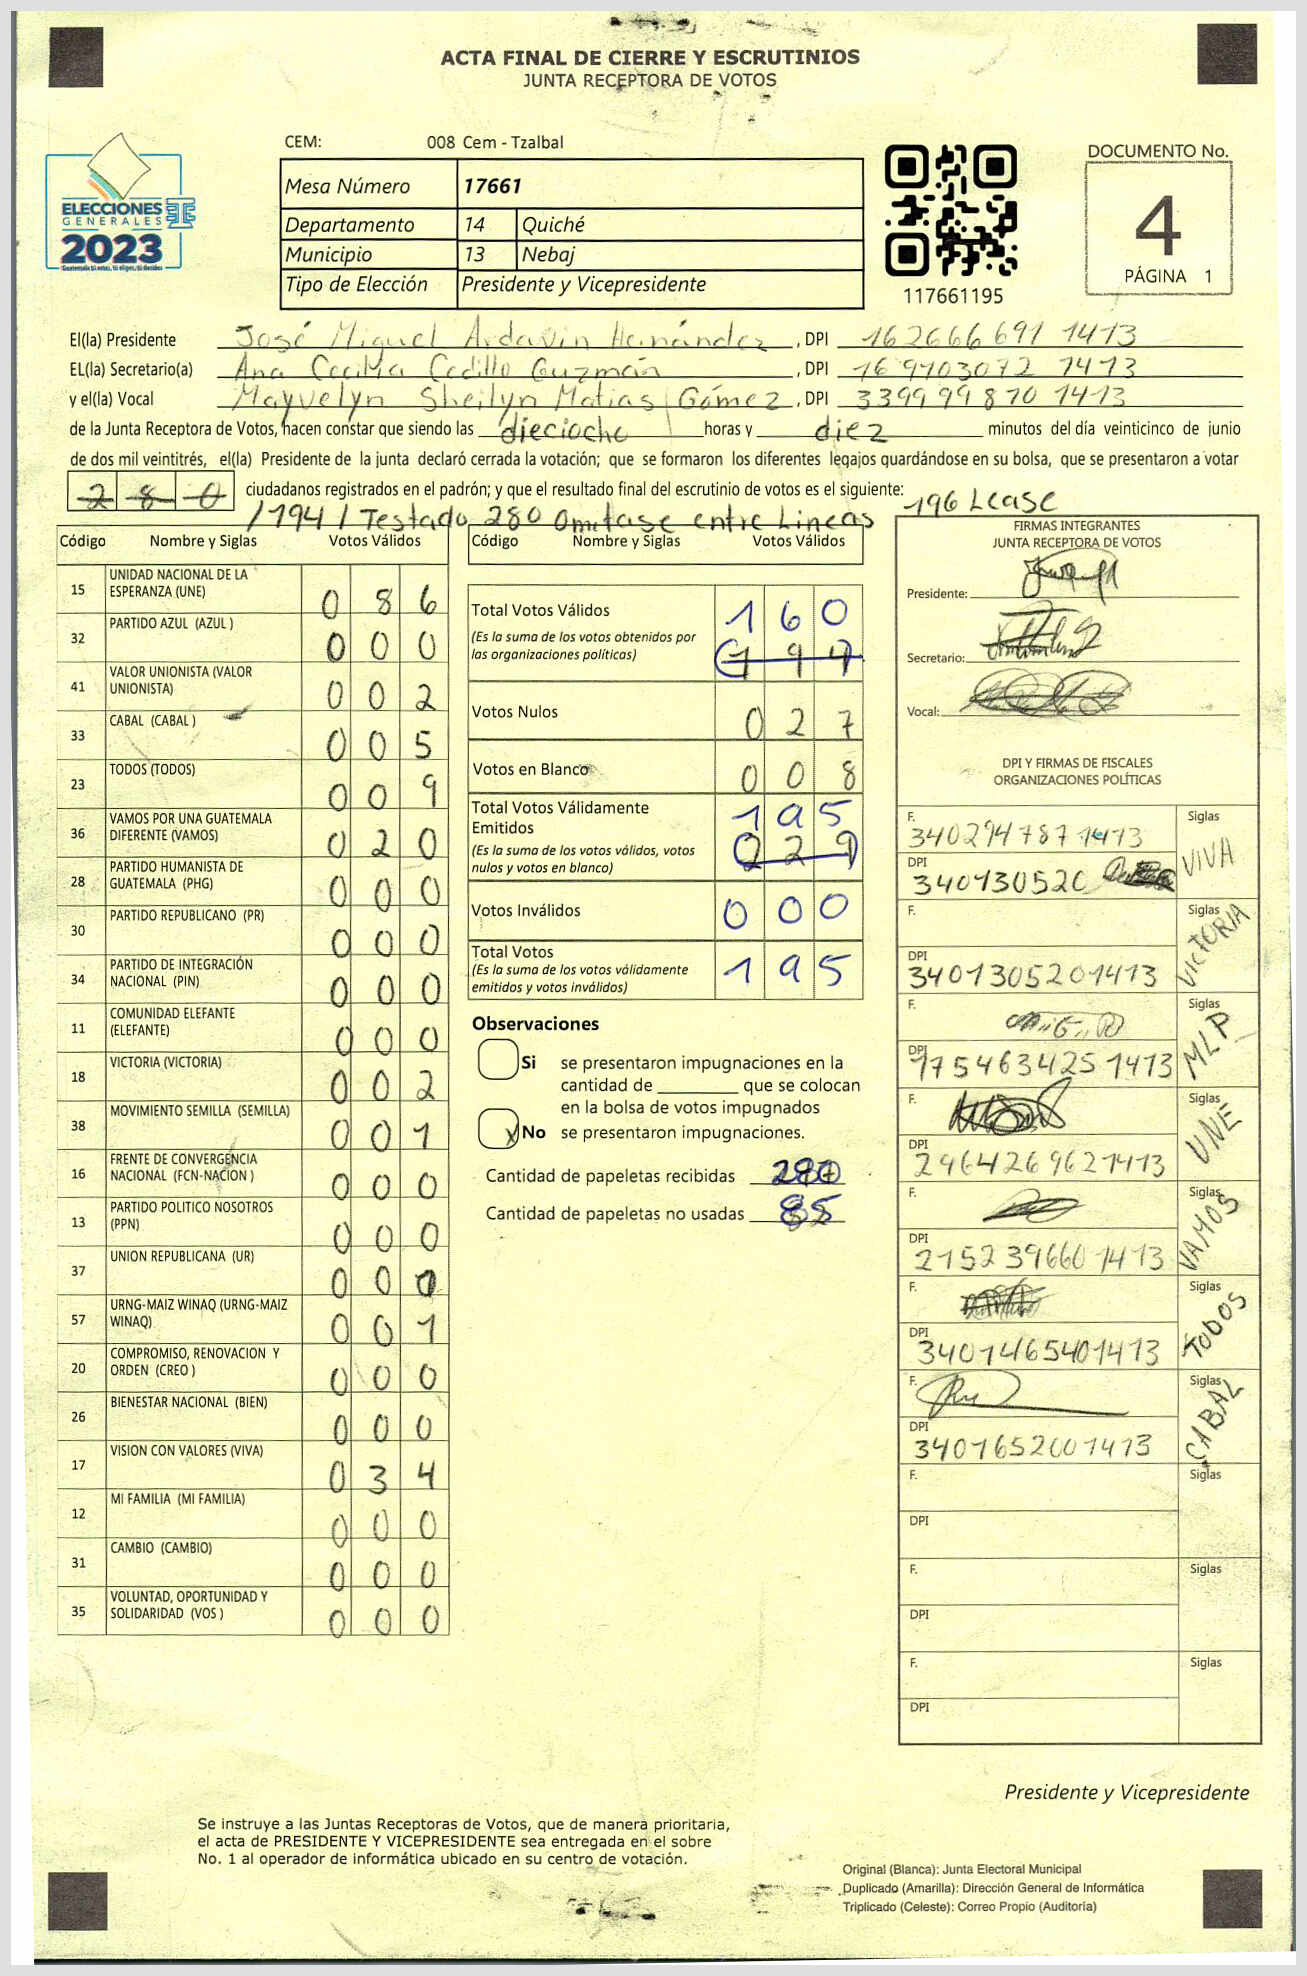 ACTA FINAL DE CIERRE Y ESCRUTINIOS
JUNTA RECEPTORA DE VOTOS
ELECCIONES
GENERALES
2023
CEM: 008 Cem - Tzalbal
Mesa Número 17661
Departamento 14 Quiché
Municipio 13 Nebaj
Tipo de Elección Presidente y Vicepresidente
117661195
DOCUMENTO No.
4
PÁGINA 1
El(la) Presidente José Miguel Ardavin Hernández, DPI 162666691 1413
EL(la) Secretario(a) Ana Cecilia Cedillo Guzmán, DPI 169103072 1413
y el(la) Vocal Mayvelyn Sheilyn Matias Gómez, DPI 339999870 1413
de la Junta Receptora de Votos, hacen constar que siendo las dieciocho horas y diez minutos del día veinticinco de junio
de dos mil veintitrés, el(la) Presidente de la junta declaró cerrada la votación; que se formaron los diferentes legajos guardándose en su bolsa, que se presentaron a votar
280 ciudadanos registrados en el padrón; y que el resultado final del escrutinio de votos es el siguiente: 196 Lease
/194/ Testado 280 Omitase entre Lineas
Código Nombre y Siglas Votos Válidos
15 UNIDAD NACIONAL DE LA ESPERANZA (UNE) 0 8 6
32 PARTIDO AZUL (AZUL ) 0 0 0
41 VALOR UNIONISTA (VALOR UNIONISTA) 0 0 2
33 CABAL (CABAL ) 0 0 5
23 TODOS (TODOS) 0 0 9
36 VAMOS POR UNA GUATEMALA DIFERENTE (VAMOS) 0 2 0
28 PARTIDO HUMANISTA DE GUATEMALA (PHG) 0 0 0
30 PARTIDO REPUBLICANO (PR) 0 0 0
34 PARTIDO DE INTEGRACIÓN NACIONAL (PIN) 0 0 0
11 COMUNIDAD ELEFANTE (ELEFANTE) 0 0 0
18 VICTORIA (VICTORIA) 0 0 2
38 MOVIMIENTO SEMILLA (SEMILLA) 0 0 1
16 FRENTE DE CONVERGENCIA NACIONAL (FCN-NACION ) 0 0 0
13 PARTIDO POLITICO NOSOTROS (PPN) 0 0 0
37 UNION REPUBLICANA (UR) 0 0 0
57 URNG-MAIZ WINAQ (URNG-MAIZ WINAQ) 0 0 1
20 COMPROMISO, RENOVACION Y ORDEN (CREO ) 0 0 0
26 BIENESTAR NACIONAL (BIEN) 0 0 0
17 VISION CON VALORES (VIVA) 0 3 4
12 MI FAMILIA (MI FAMILIA) 0 0 0
31 CAMBIO (CAMBIO) 0 0 0
35 VOLUNTAD, OPORTUNIDAD Y SOLIDARIDAD (VOS ) 0 0 0
Código Nombre y Siglas Votos Válidos
Total Votos Válidos 1 6 0
(Es la suma de los votos obtenidos por
las organizaciones políticas) 1 9 4
Votos Nulos 0 2 7
Votos en Blanco 0 0 8
Total Votos Válidamente
Emitidos 1 9 5
(Es la suma de los votos válidos, votos
nulos y votos en blanco) 2 2 9
Votos Inválidos 0 0 0
Total Votos 1 9 5
(Es la suma de los votos válidamente
emitidos y votos inválidos)
Observaciones
Si se presentaron impugnaciones en la
cantidad de ________ que se colocan
en la bolsa de votos impugnados
X No se presentaron impugnaciones.
Cantidad de papeletas recibidas
Cantidad de papeletas no usadas 85
FIRMAS INTEGRANTES
JUNTA RECEPTORA DE VOTOS
Presidente:
Secretario:
Vocal:
DPI Y FIRMAS DE FISCALES
ORGANIZACIONES POLÍTICAS
F. 3402947871413 Siglas VIVA
DPI 340130520
F. Siglas VICTORIA
DPI 3401305201413
F. Siglas MLP
DPI 1754634251413
F. Siglas UNE
DPI 2964269621413
F. Siglas VAMOS
DPI 2152396601413
F. Siglas TODOS
DPI 3401465401413
F. Siglas CABAL
DPI 3401652001413
F. Siglas
DPI
F. Siglas
DPI
F. Siglas
DPI
Presidente y Vicepresidente
Se instruye a las Juntas Receptoras de Votos, que de manera prioritaria,
el acta de PRESIDENTE Y VICEPRESIDENTE sea entregada en el sobre
No. 1 al operador de informática ubicado en su centro de votación.
Original (Blanca): Junta Electoral Municipal
Duplicado (Amarilla): Dirección General de Informática
Triplicado (Celeste): Correo Propio (Auditoría)